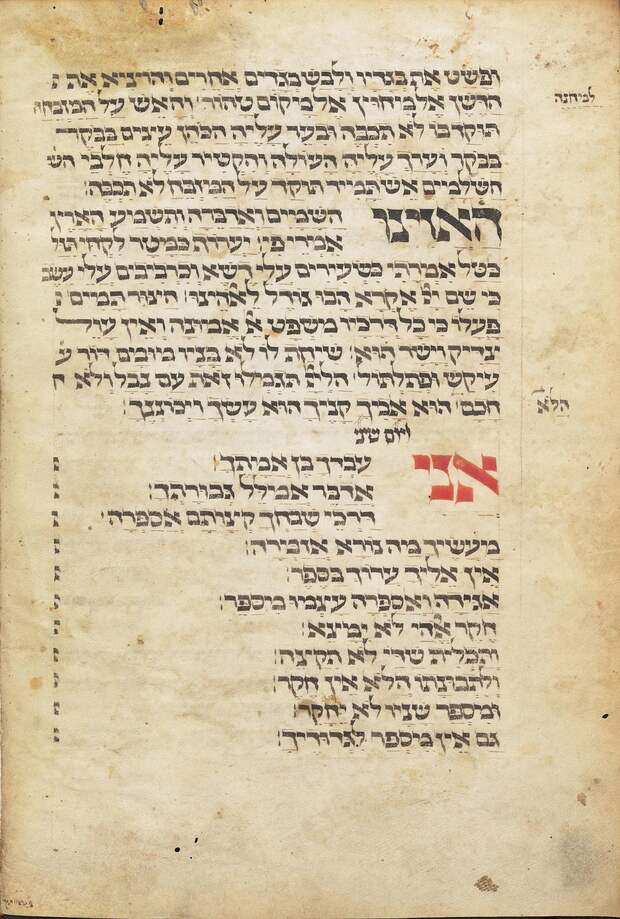 ופשט את בגדיו ולבש בגדים אחרים והוציא את
הדשן אל מיחוץ אל מקום טהור׳ והאש על המזבח
למיחנה
תוקד בו לא תכבה ובער עליה הכהן עצים בבקר
בבקר וערך עליה העולה והקטיר עליה חלבי הש
השלמיים אש תמייד תוקד על המיזבח לא תכבה׃
האזינו השמיים ואדברה ותשמע הארץ
אמרי פי׳ יערוף כמטר לקחי תזל
כטל אמרתי כשעירים עלי דשא וכרביבים עלי עשב
כי שם אקרא הבו גודל לאלהינו׳ הצור תמים
פעלו כי כל דרכיו משפט א אמונה ואין עול
צדיק וישר הוא׳ שיחת לו לא בניו מומם דור ע
עיקש ופתלתול׳ הלא תגמלו זאת עם נבל ולא ח
הלא
חכם׳ הוא אביך קניך הוא עשך ויכוננך׃
ויום שיני
אני עבדך בן אמתך׃
אדבר אמלל גבורתך׃
דרכי שבחך קיצותם אספרה׃
מעשיך מה נורא אזמירה׃
אין אליך ערוך בספר׃
אגידה ואספרה עיצמו מיספר׃
חקר לא ימצא׃
ותכלית שדי לא תקיצה׃
ולתבונתו הלא אין חקר׃
ומספר שניו לא יחקר׃
גם אין מיספר לגדודיך׃